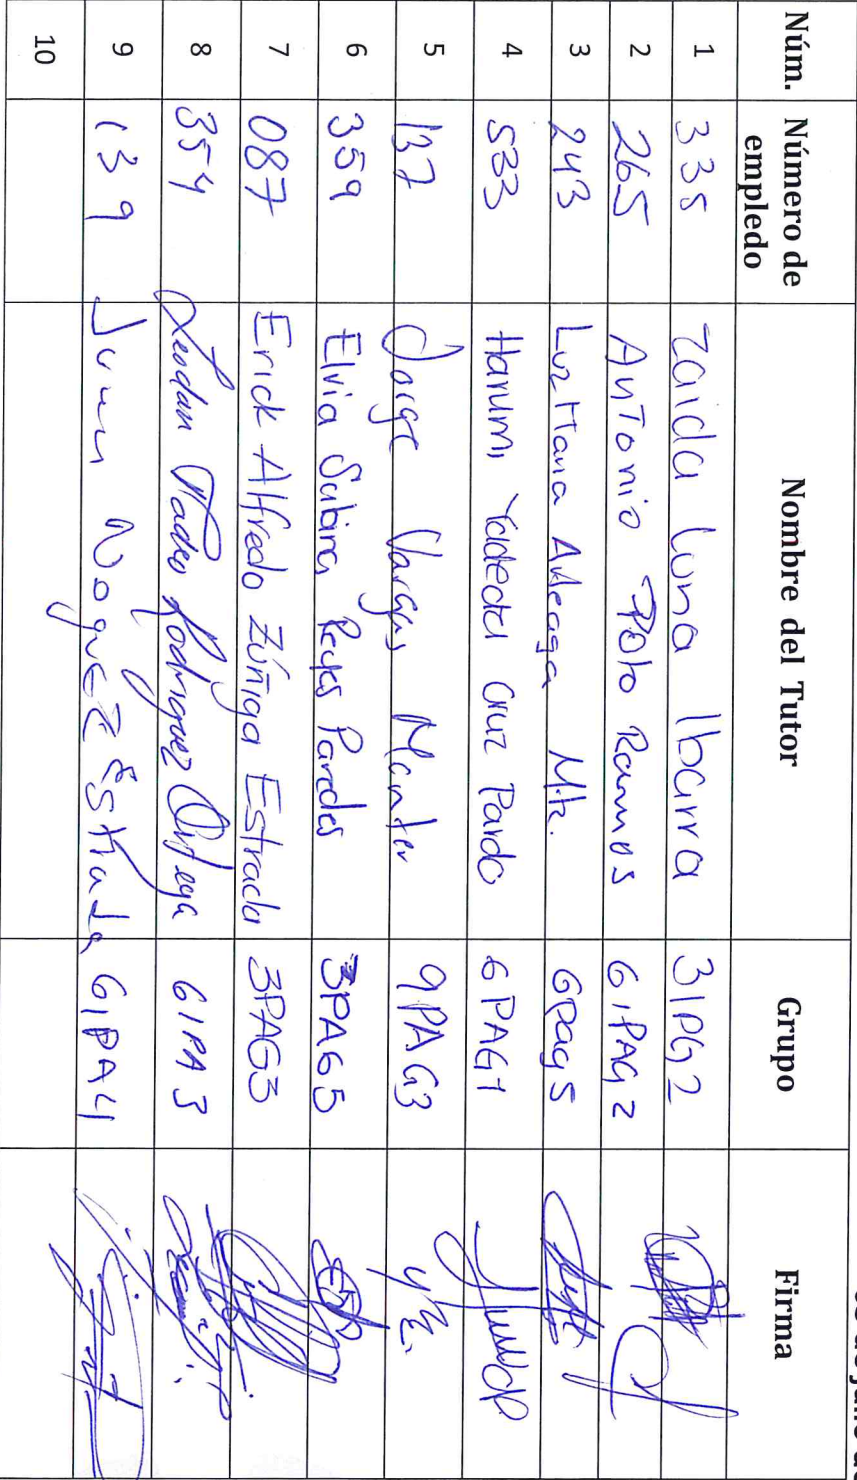 de julio
Núm. Número de empledo Nombre del Tutor Grupo Firma
1 335 Zaida Luna Ibarra 31PG2
2 265 Antonio Polo Ramos 61PAG2
3 243 Luz Maria Arteaga Mtz. 6Pag5
4 533 Harumi Yadedd Cruz Pardo 6PAG1
5 137 Jorge Vargas 9PAG3
6 359 Elvia Sabina Reyes Paredes 3PAG5
7 087 Erick Alfredo Zúñiga Estrada 3PAG3
8 354 Leodan Tadeo Rodriguez Ortega 61PA3
9 139 Juan NoguEZ Estrada 61PA4
10